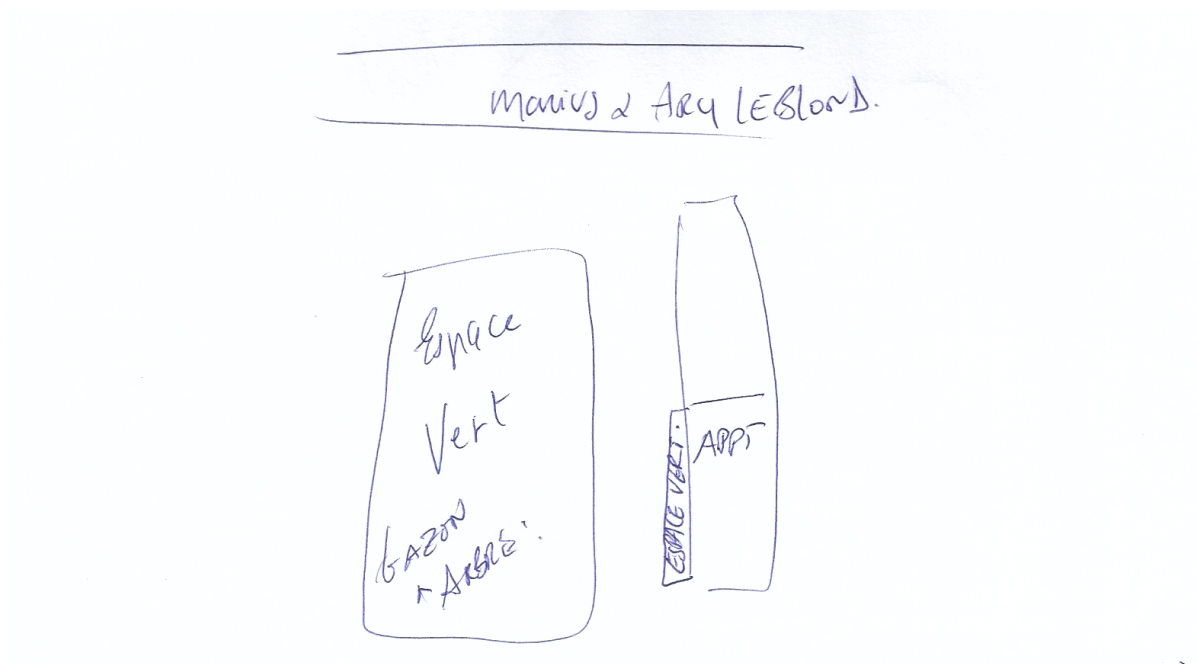 Marius & ARY LEBLOND.
Espace
Vert
GAZON
+ ARBRE.
APPT
ESPACE VERT.